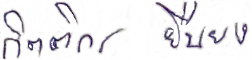 กิตติกร ยืนยง